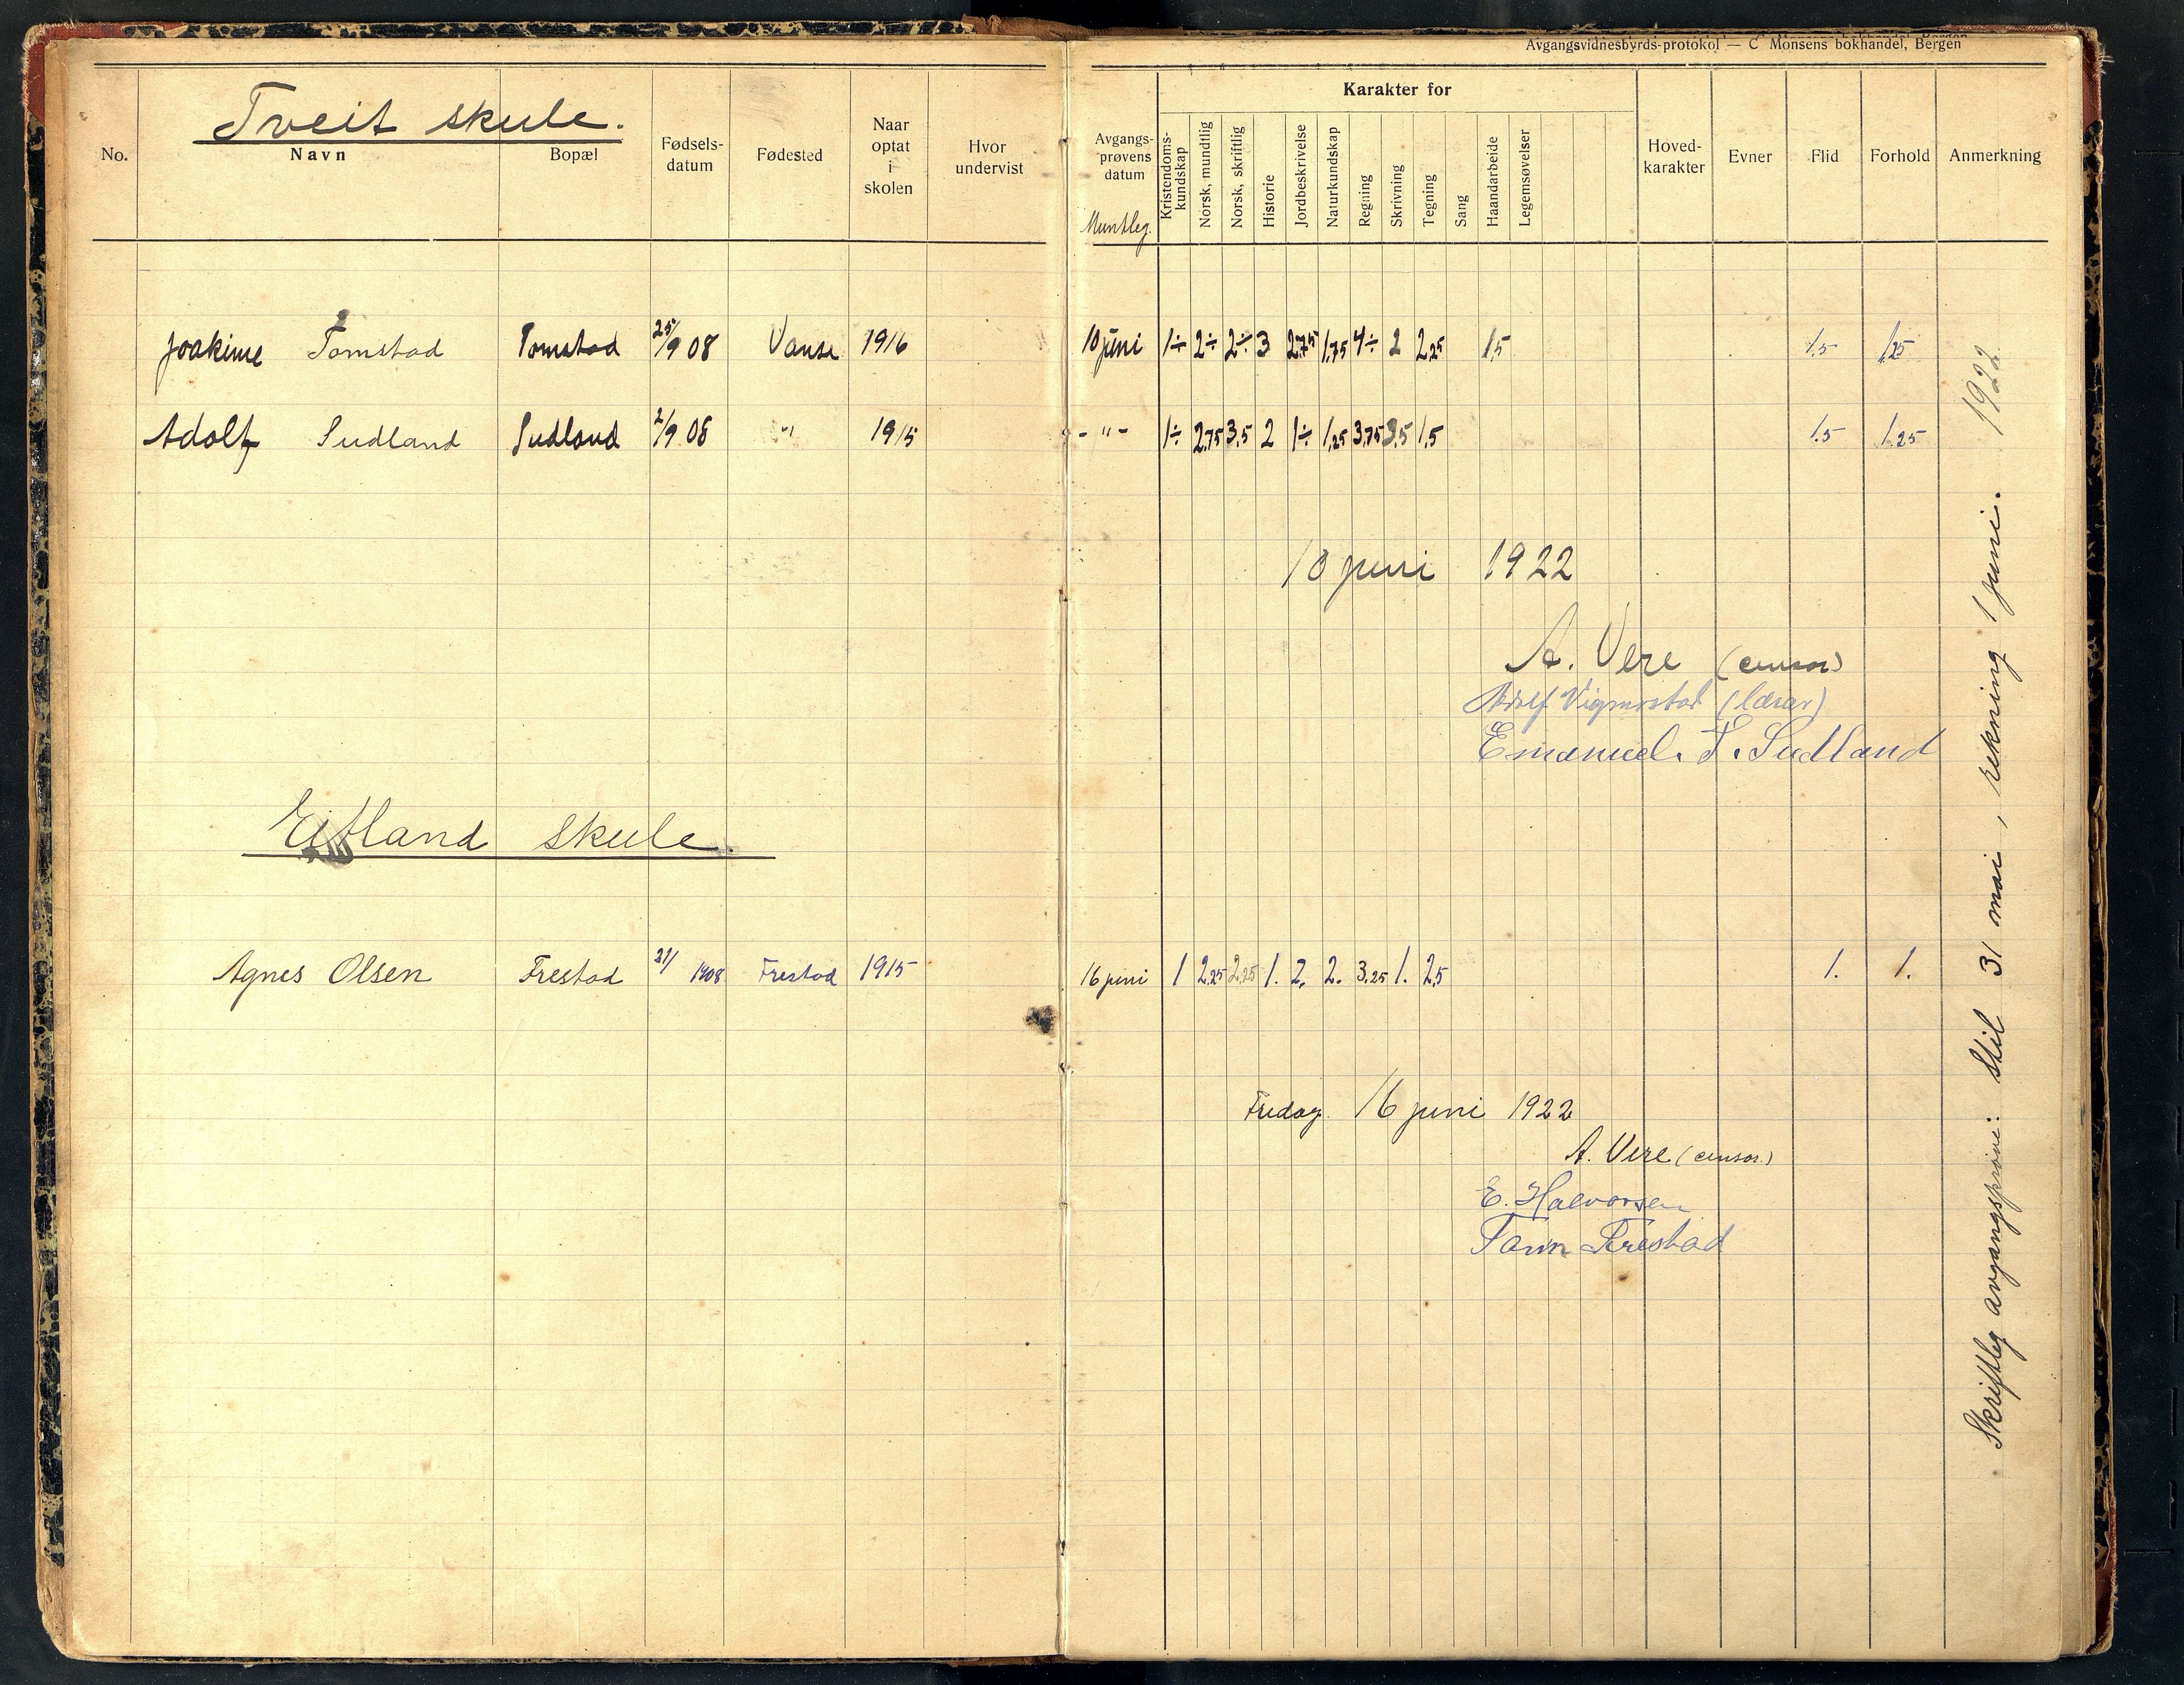 Avgangsvidnesbyrds-protokol — C Monsens bokhandel, Bergen
Tveit skule.
No. Navn Bopæl Fødsels-datum Fødested Naar optat i skolen Hvor undervist Avgangs-prøvens datum Karakter for Kristendoms-kundskap Norsk, mundtlig Norsk, skriftlig Historie Jordbeskrivelse Naturkundskap Regning Skrivning Tegning Sang Haandarbeide Legemsøvelser Hoved-karakter Evner Flid Forhold Anmerkning
Muntleg.
Joakime Tomstad Tomstad 25/9 08 Vanse 1916 10 juni 1÷ 2÷ 2÷ 3 2.75 1.75 4÷ 2 2.25 1.5 1.5 1.25
Adolf Sudland Sudland 2/9 08 " 1915 - " - 1÷ 2.75 3.5 2 1÷ 1.25 3.75 3.5 1.5 1.5 1.25
10 juni 1922
A. Vere (censor)
Adolf Vigmostad (lærar)
Emanuel. T. Sudland
Eitland skule.
Agnes Olsen Frestad 21/ 1908 Frestad 1915 16 juni 1 2.25 2.25 1. 2. 2. 3.25 1. 2.5 1. 1.
Fredag 16 juni 1922
A. Vere (censor.)
E. Halvorsen
Frestad
Skriftleg avgangsprøve: Stil 31 mai, rekning 1 juni. 1922